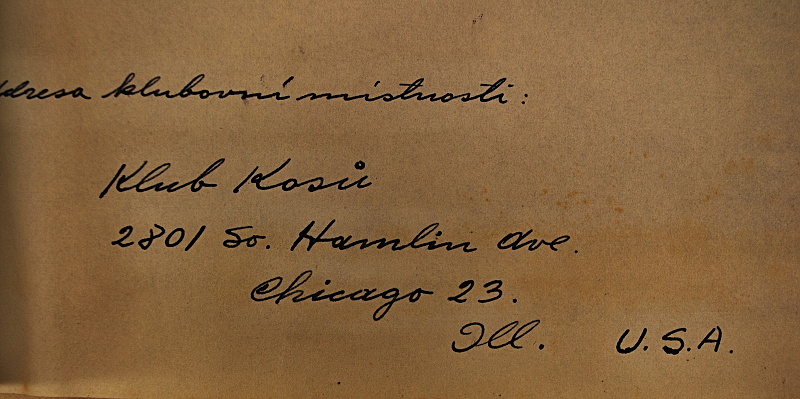 Adresa klubovní místnosti:
Klub Kosů
2801 So. Hamlin Ave.
Chicago 23.
Ill. U.S.A.